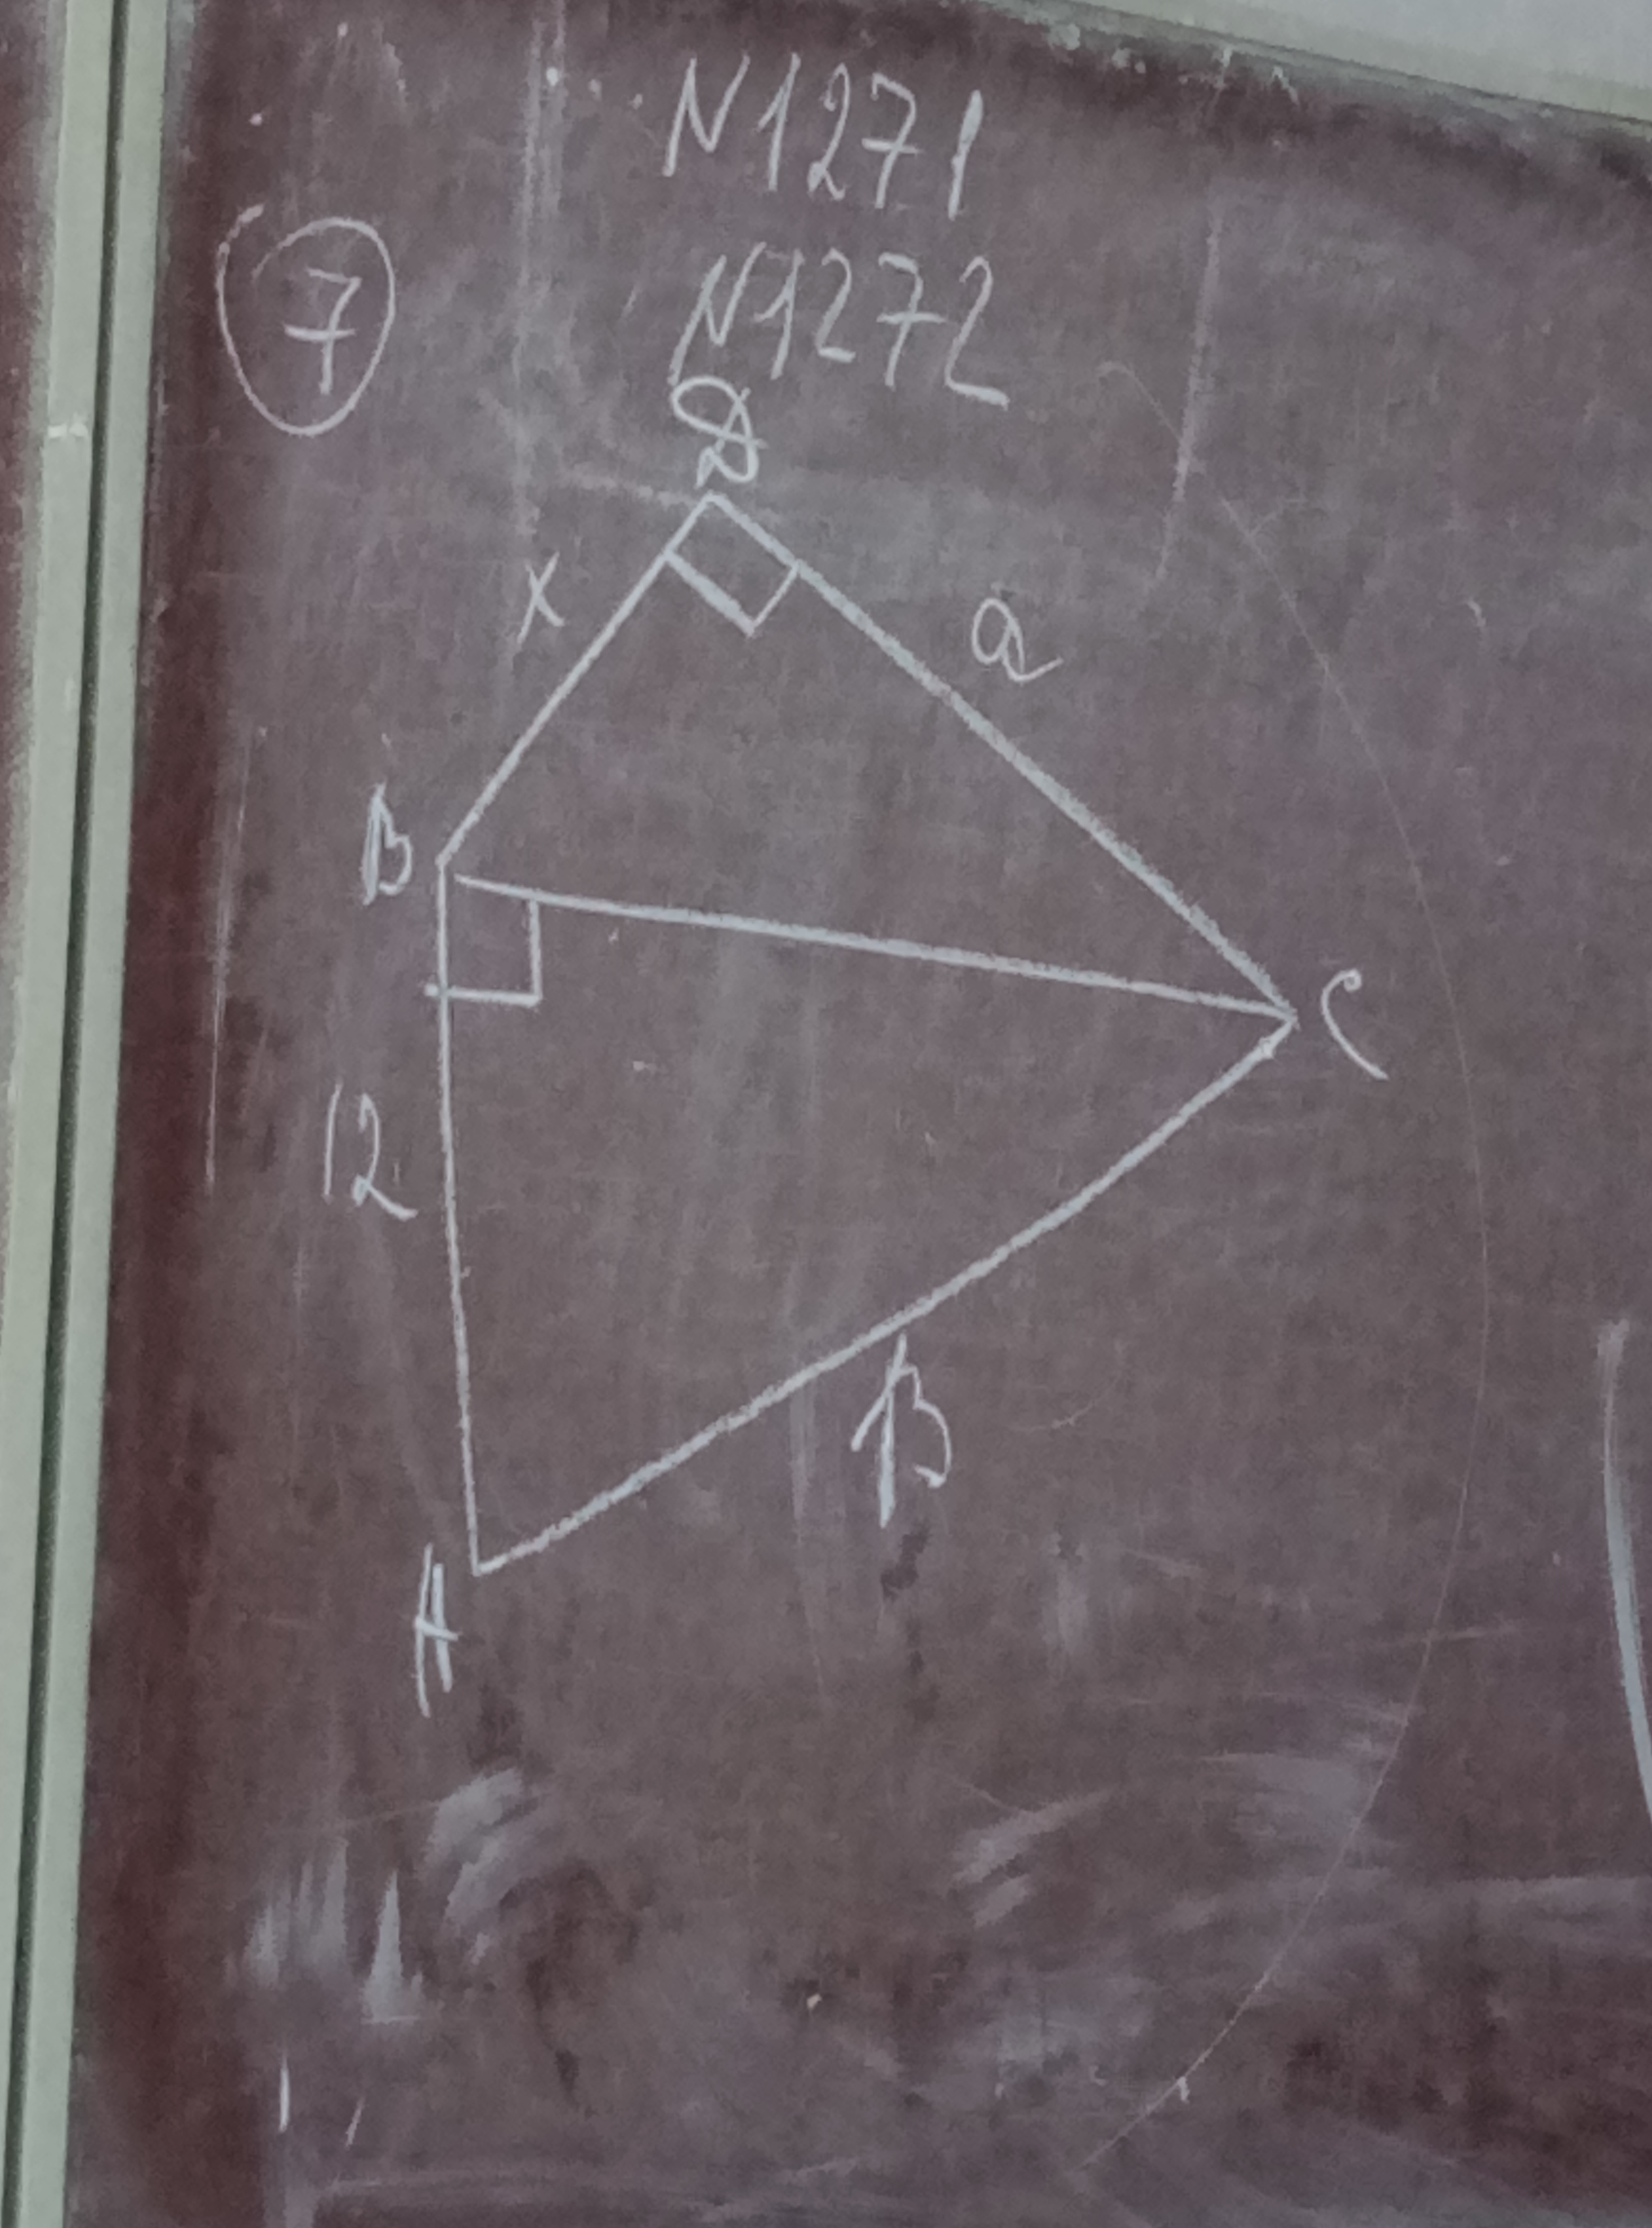 N1271
7
N1272
D
x
a
B
C
12
13
A